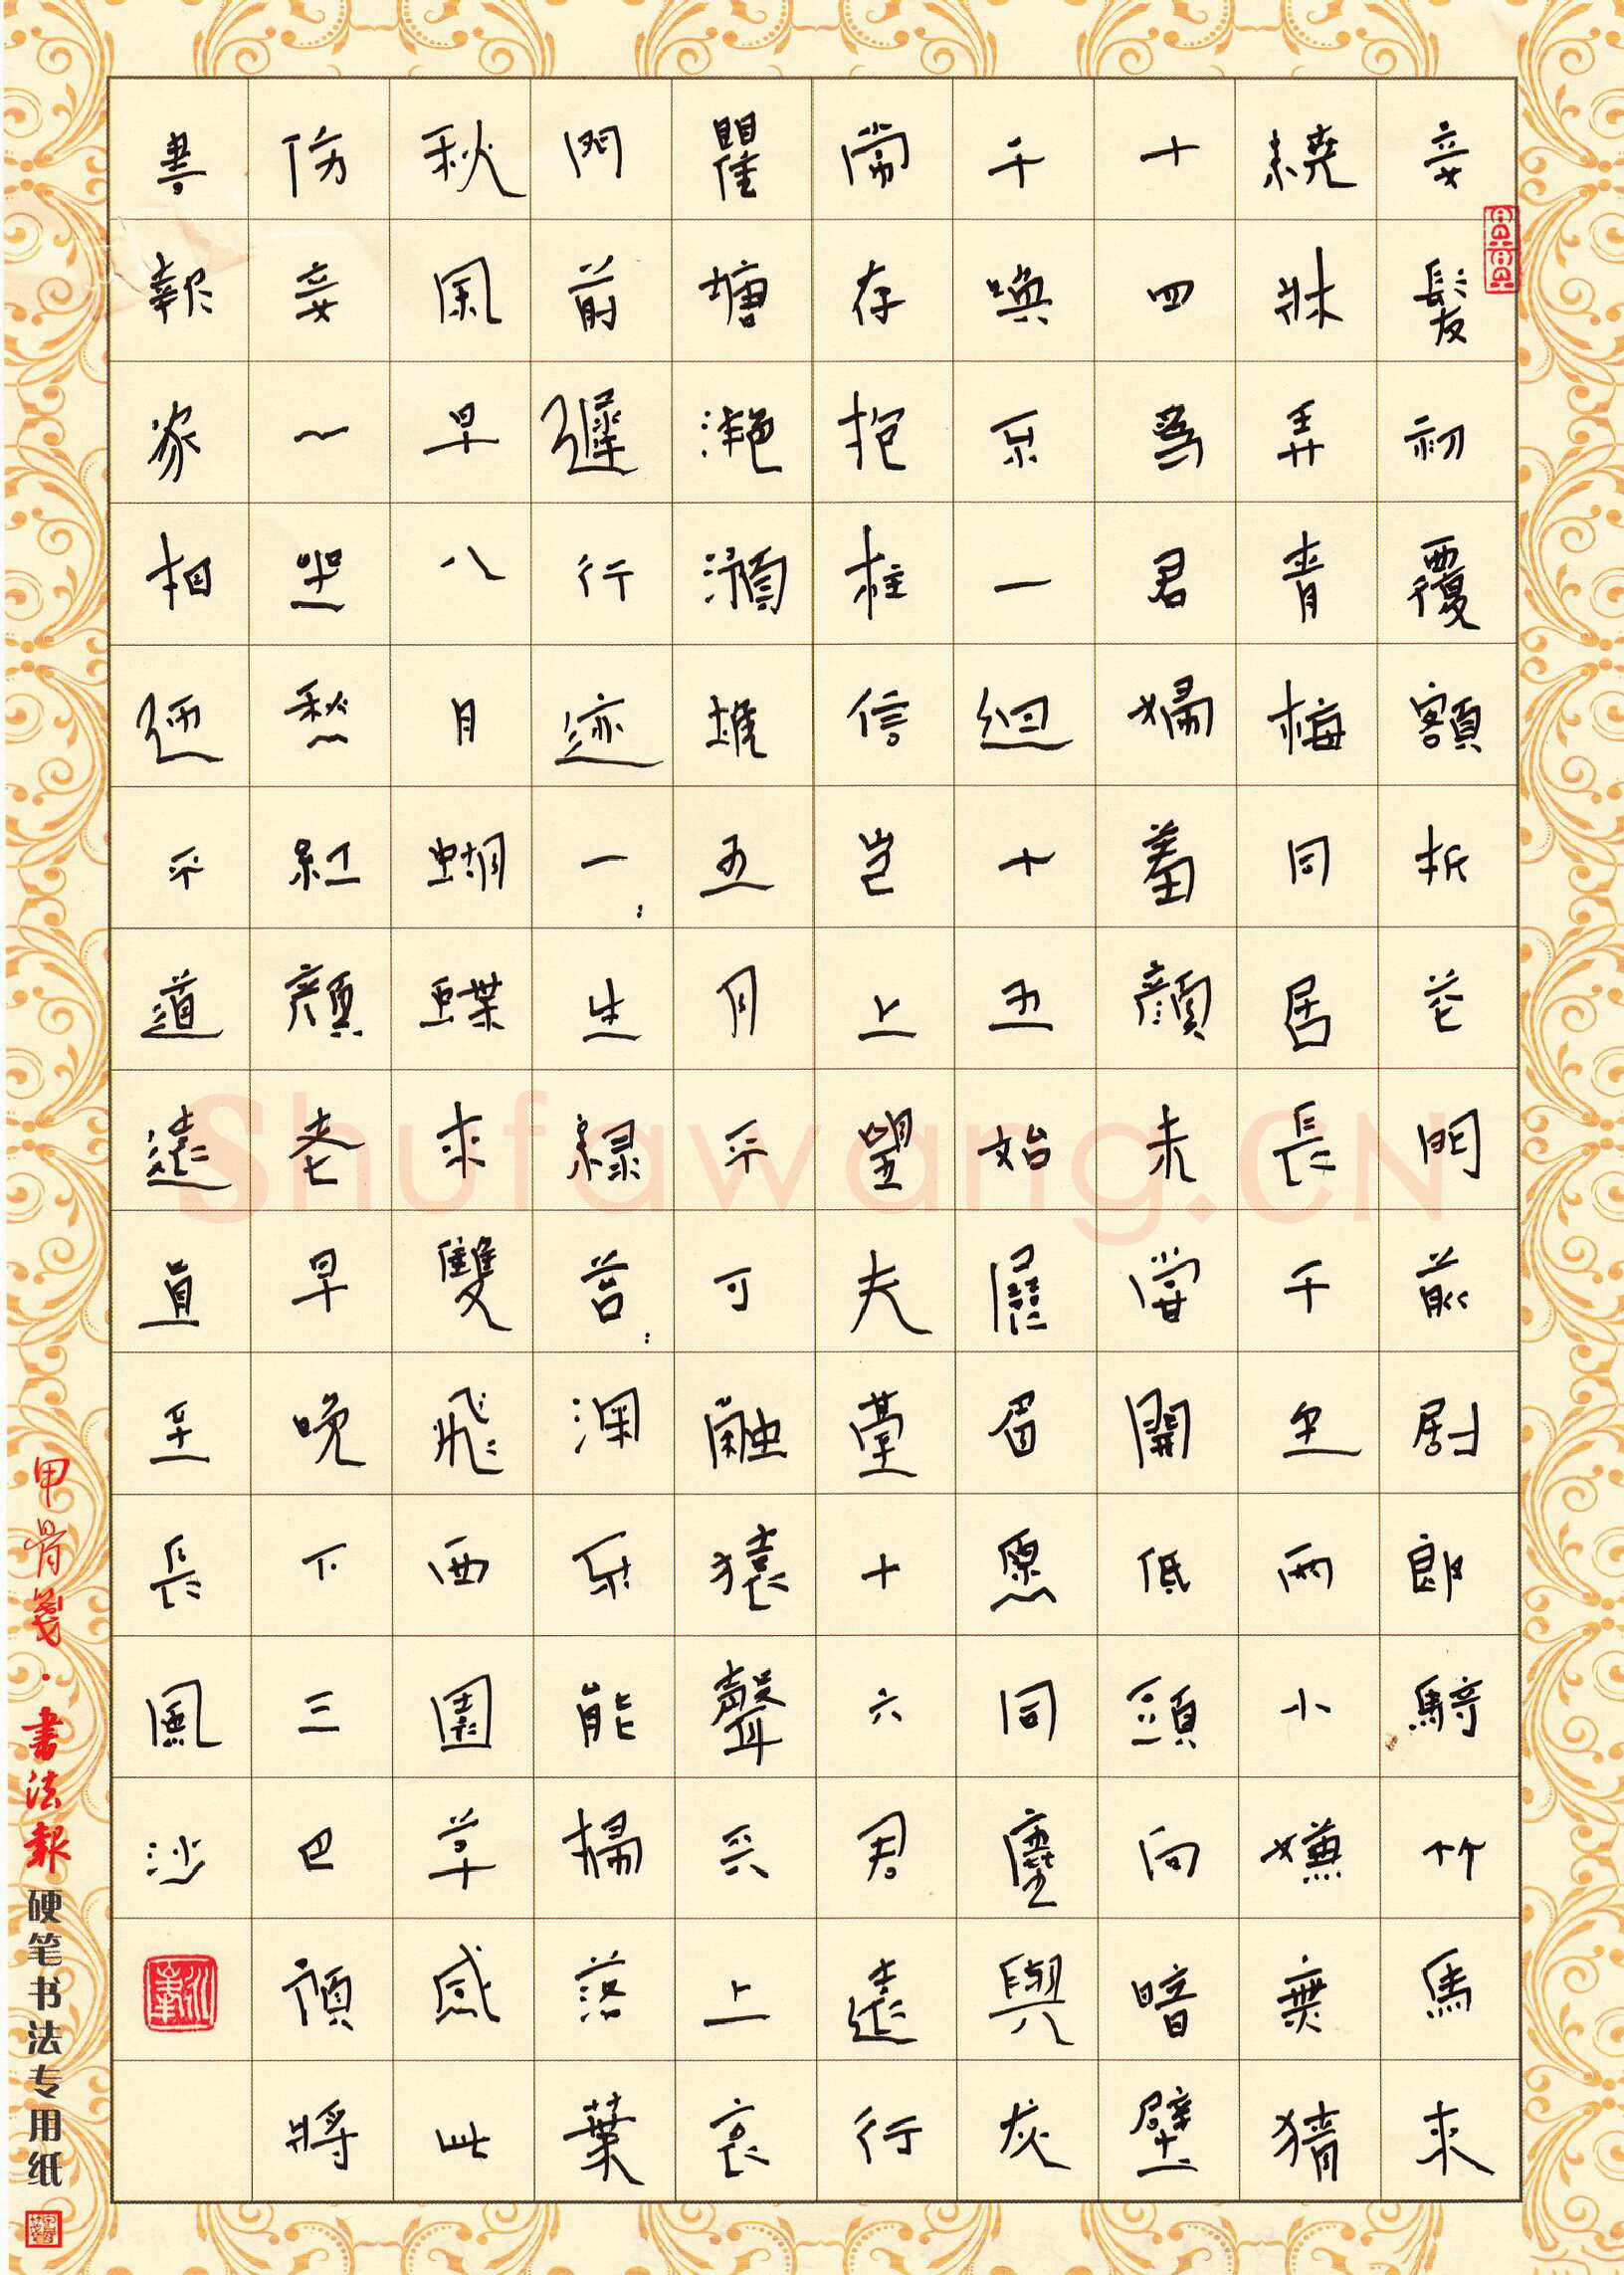 妾髮初覆額折花門前劇郎騎竹馬來
繞牀弄青梅同居長干里兩小嫌無猜
十四爲君婦羞顏未嘗開低頭向暗壁
千喚不一迴十五始展眉願同塵與灰
常存抱柱信豈上望夫臺十六君遠行
瞿塘灩澦堆五月不可觸猿聲天上哀
門前遲行迹一:生綠苔:深不能掃落葉
秋風早八月蝴蝶來雙飛西園草感此
伤妾心坐愁紅顏老早晚下三巴預將
書報家相迎不道遠直至長風沙
甲骨箋·書法報 硬笔书法专用纸
Shufawang.CN